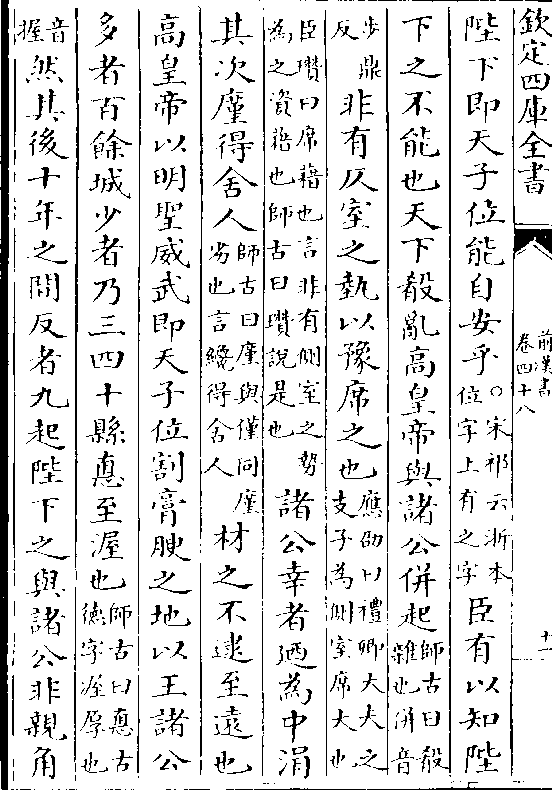 欽定四庫全書
前漢書
卷四十八
十一
陛下即天子位能自安乎○宋祁云浙本位字上有之字臣有以知陛
下之不能也天下殽亂高皇帝與諸公併起師古曰殽雜也併音
步鼎反非有仄室之埶以豫席之也應劭曰禮卿大夫之支子為側室席大也
臣瓚曰席藉也言非有側室之勢為之資藉也師古曰瓚說是也諸公幸者廼為中涓
其次廑得舍人師古曰廑與僅同廑劣也言纔得舍人材之不逮至遠也
高皇帝以明聖威武即天子位割膏腴之地以王諸公
多者百餘城少者乃三四十縣悳至渥也師古曰悳古德字渥厚也
音握然其後十年之間反者九起陛下之與諸公非親角